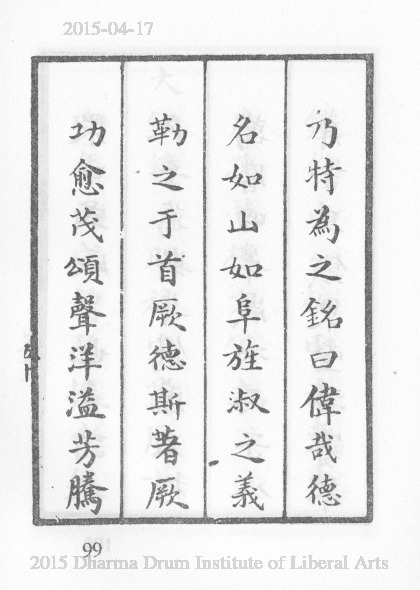 2015-04-17
乃特為之銘曰偉哉德
名如山如阜旌淑之義
勒之于首厥德斯著厥
功愈茂頌聲洋溢芳騰
99
2015 Dharma Drum Institute of Liberal Arts